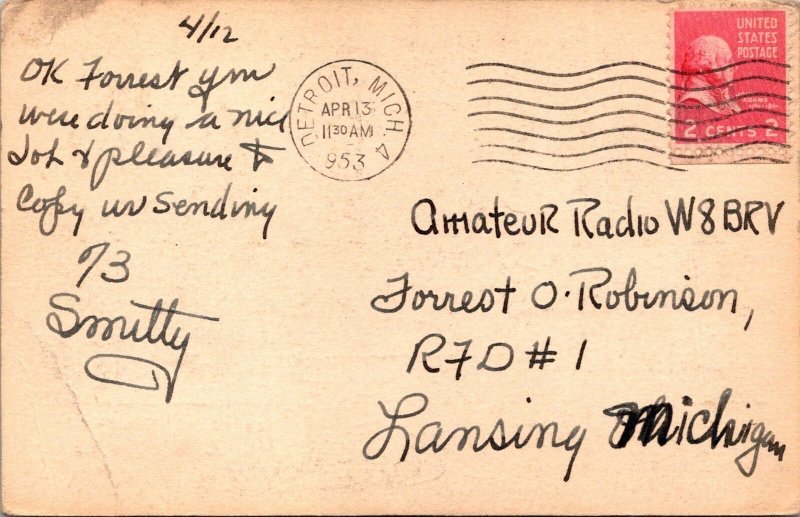 4/12
OK Forrest ym
were doing a nice
Job & pleasure to
Copy ur sending
73
Smitty
DETROIT, MICH. 4
APR 13
11 30 AM
1953
UNITED
STATES
POSTAGE
ADAMS
2 CENTS 2
Amateur Radio W8BRV
Forrest O. Robinson,
RFD # 1
Lansing Michigan